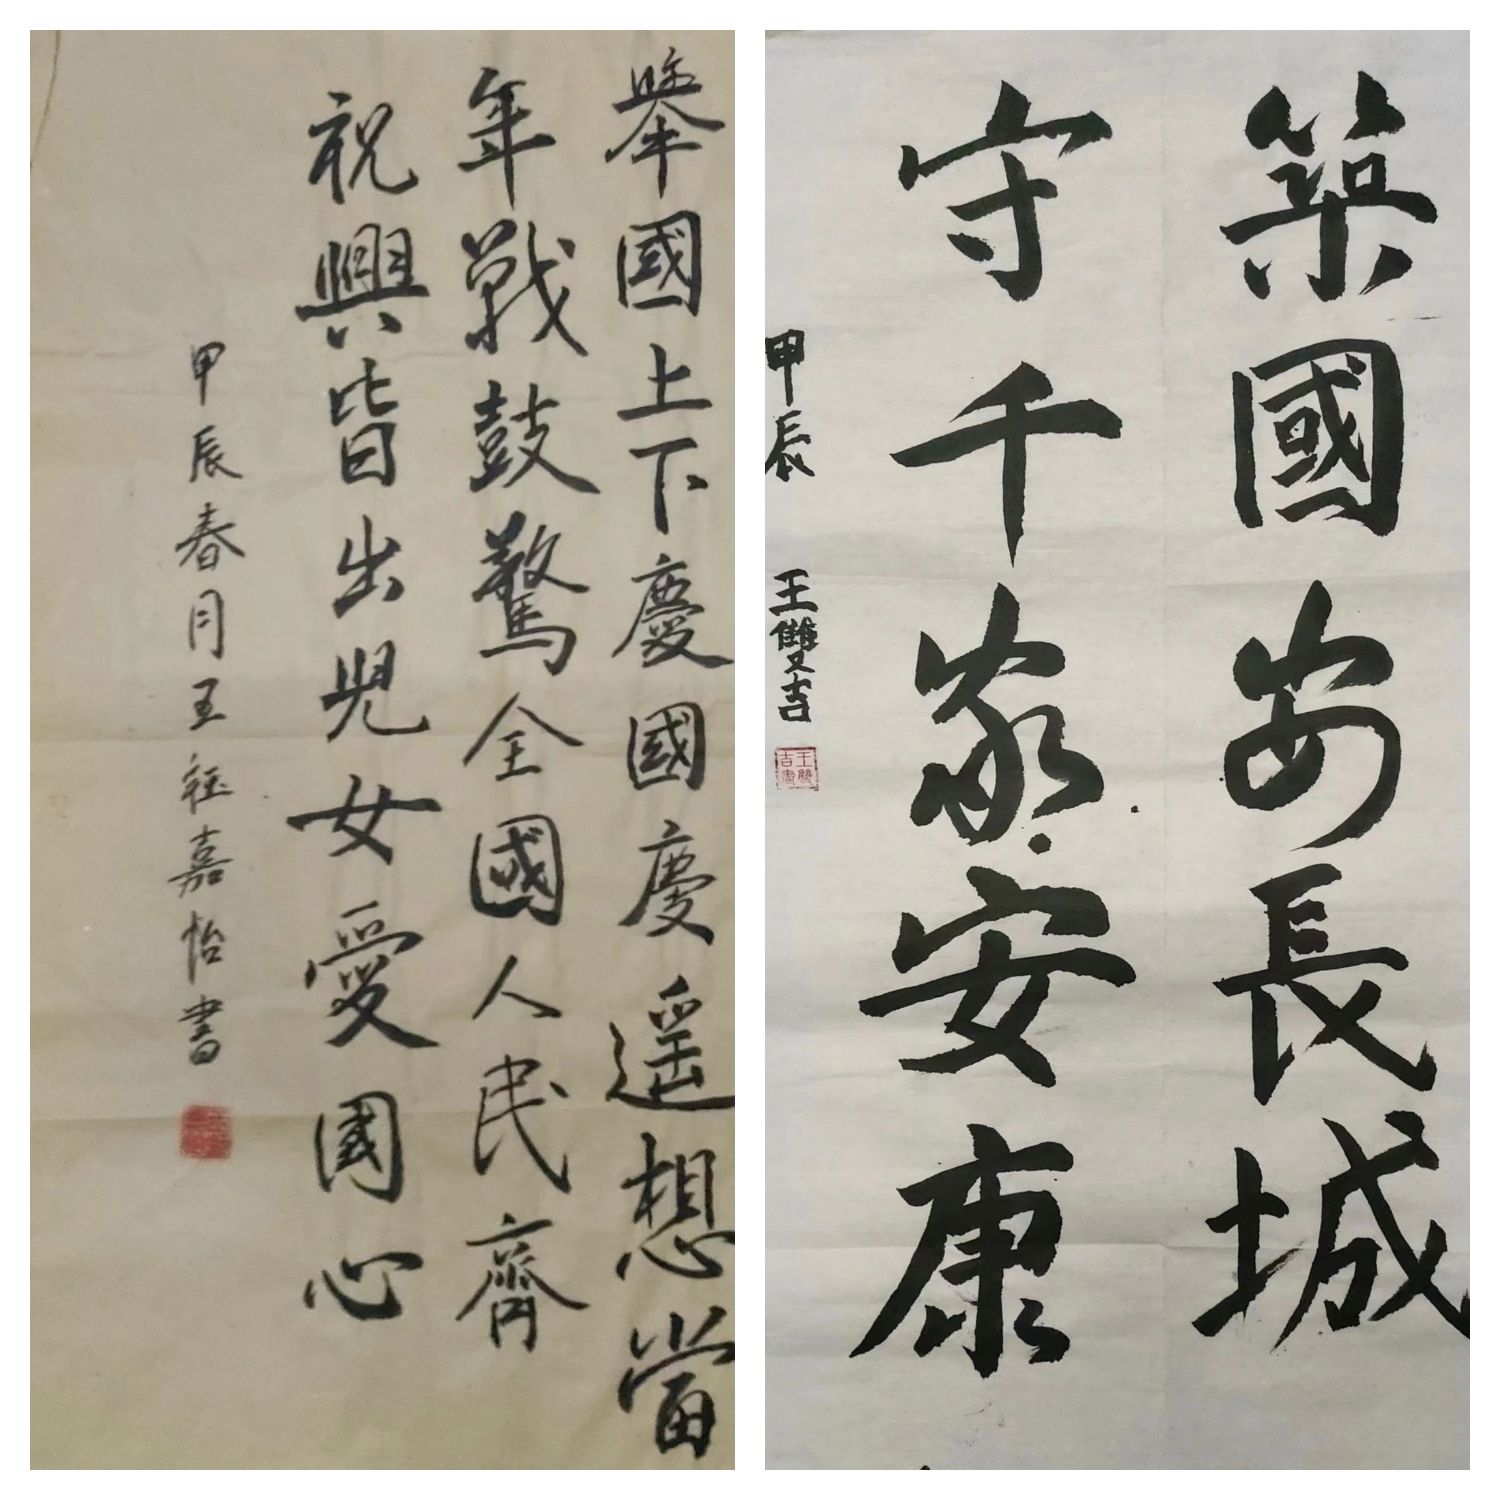 舉國上下慶國慶遥想當
年戰鼓驚全國人民齊
祝興皆出兒女愛國心
甲辰春月王鈺嘉怡書
築國安長城
守千家安康
甲辰 王雙吉
王雙吉書